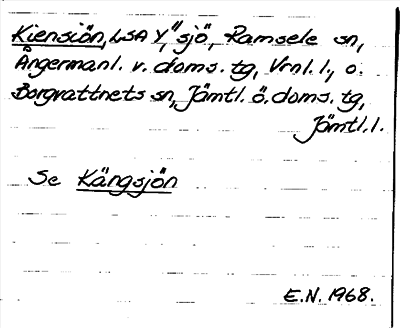 Kiensiön, LSA Y, "sjö, Ramsele sn,
Ångermanl. v. doms. tg, Vrnl. l., o.
Borgvattnets sn, Jämtl. ö. doms. tg,
Jämtl. l.
Se Kängsjön
E.N. 1968.